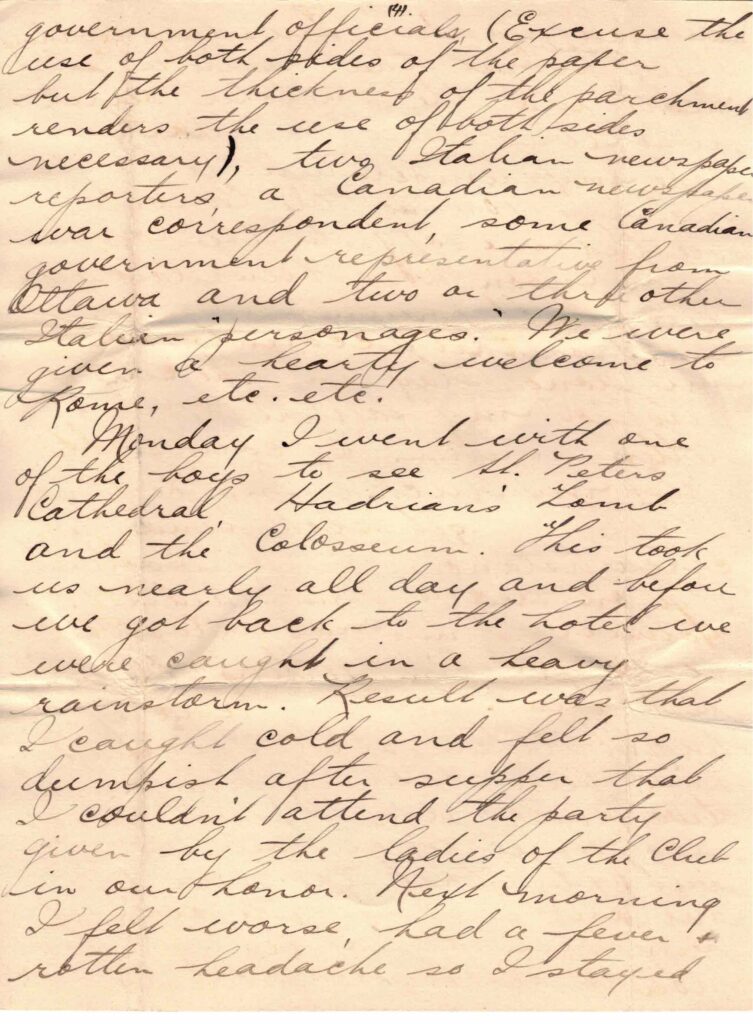 government officials, (Excuse the
use of both sides of the paper
but the thickness of the parchment
renders the use of both sides
necessary), two Italian newspaper
reporters, a Canadian newspaper
war correspondent, some Canadian
government representative from
Ottawa and two or three other
Italian "personages." We were
given a hearty welcome to
Rome, etc. etc.
Monday I went with one
of the boys to see St. Peters
Cathedral, Hadrian's Tomb
and the Colosseum. This took
us nearly all day and before
we got back to the hotel we
were caught in a heavy
rainstorm. Result was that
I caught cold and felt so
dumpish after supper that
I couldn't attend the party
given by the ladies of the Club
in our honor. Next morning
I felt worse, had a fever +
rotten headache so I stayed